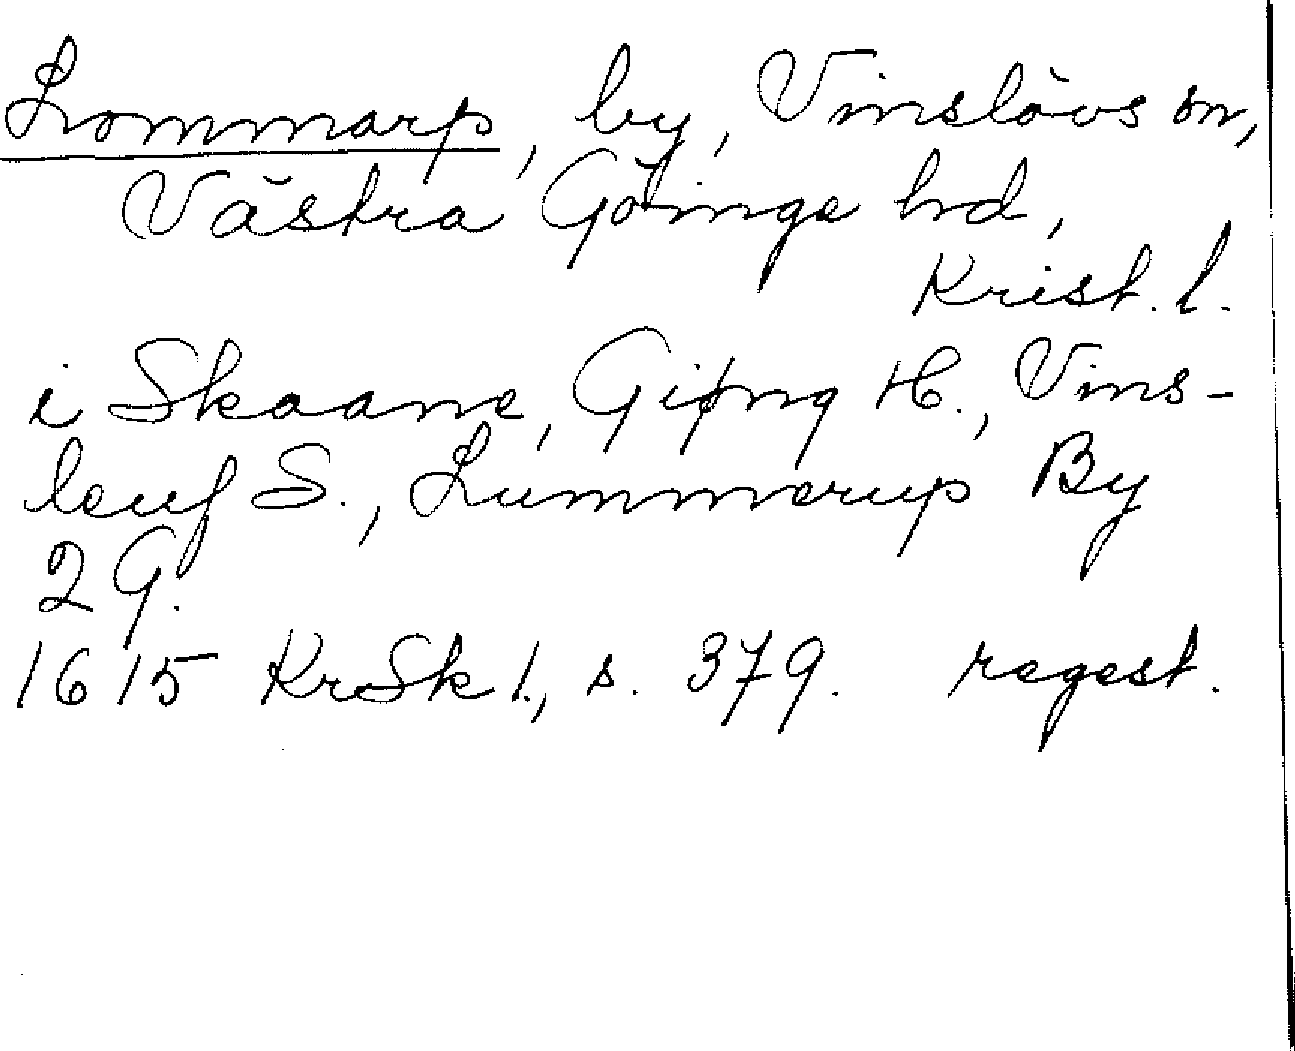 Lommarp, by, Vinslövs sn,
Västra Göinge hd,
Krist. l.
i Skaane, Giøng H., Vins-
leuf S., Lummerup By
2 G.
1615 KrSk 1., s. 379. regest.